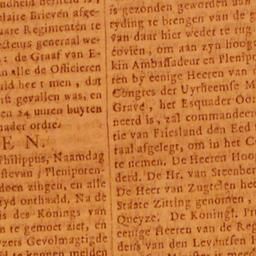 ndheid bestaat is,
culaire Brieven afge-
aare Regimenten te
recteurs generaal we-
: de Graaf van E-
an alle de Officieren
ld hee t men, dat
ft gevallen was, en
en 24 uuren buyten
nader ordre.
E N.
Philippus, Naamdag
stevan / Pleniporen-
deen zingen, en alle
yd onthaald. Na de
is des Konings van
n te gemoet ziet, en
yzers Gevolmagtigde
d te kennen melden
is gezonden geworden van
tyding te brengen van de g
van daar hier weder te rug
covien, om aan zyn hoog
kin Ambassadeur en Plenip
ren by eenige Heeren van
Congres der Uytheemse M
Grave, het Esquader Oor
neerd is, zal commandeer
tie van Friesland den Eed
raal afgelegt, om in het C
te nemen. De Heeren Hoo
derd. De Hr. van Steenber
De Heer van Zugtelen hee
Staate Zitting genomen,
Queyze. De Koningl. Pr
eenige Heeren van de Reg
dens van den Levantsen H